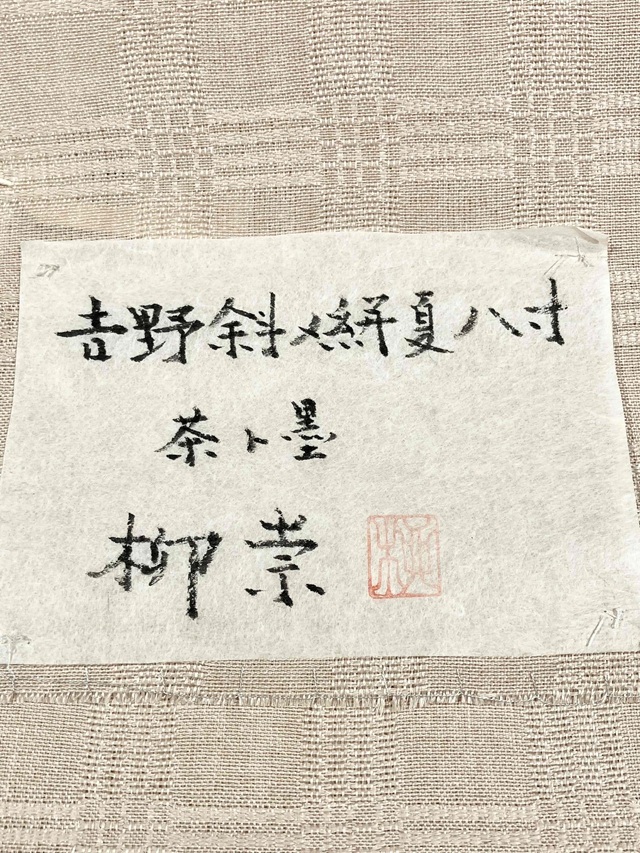 吉野斜メ絣夏八寸
茶ト墨
柳崇